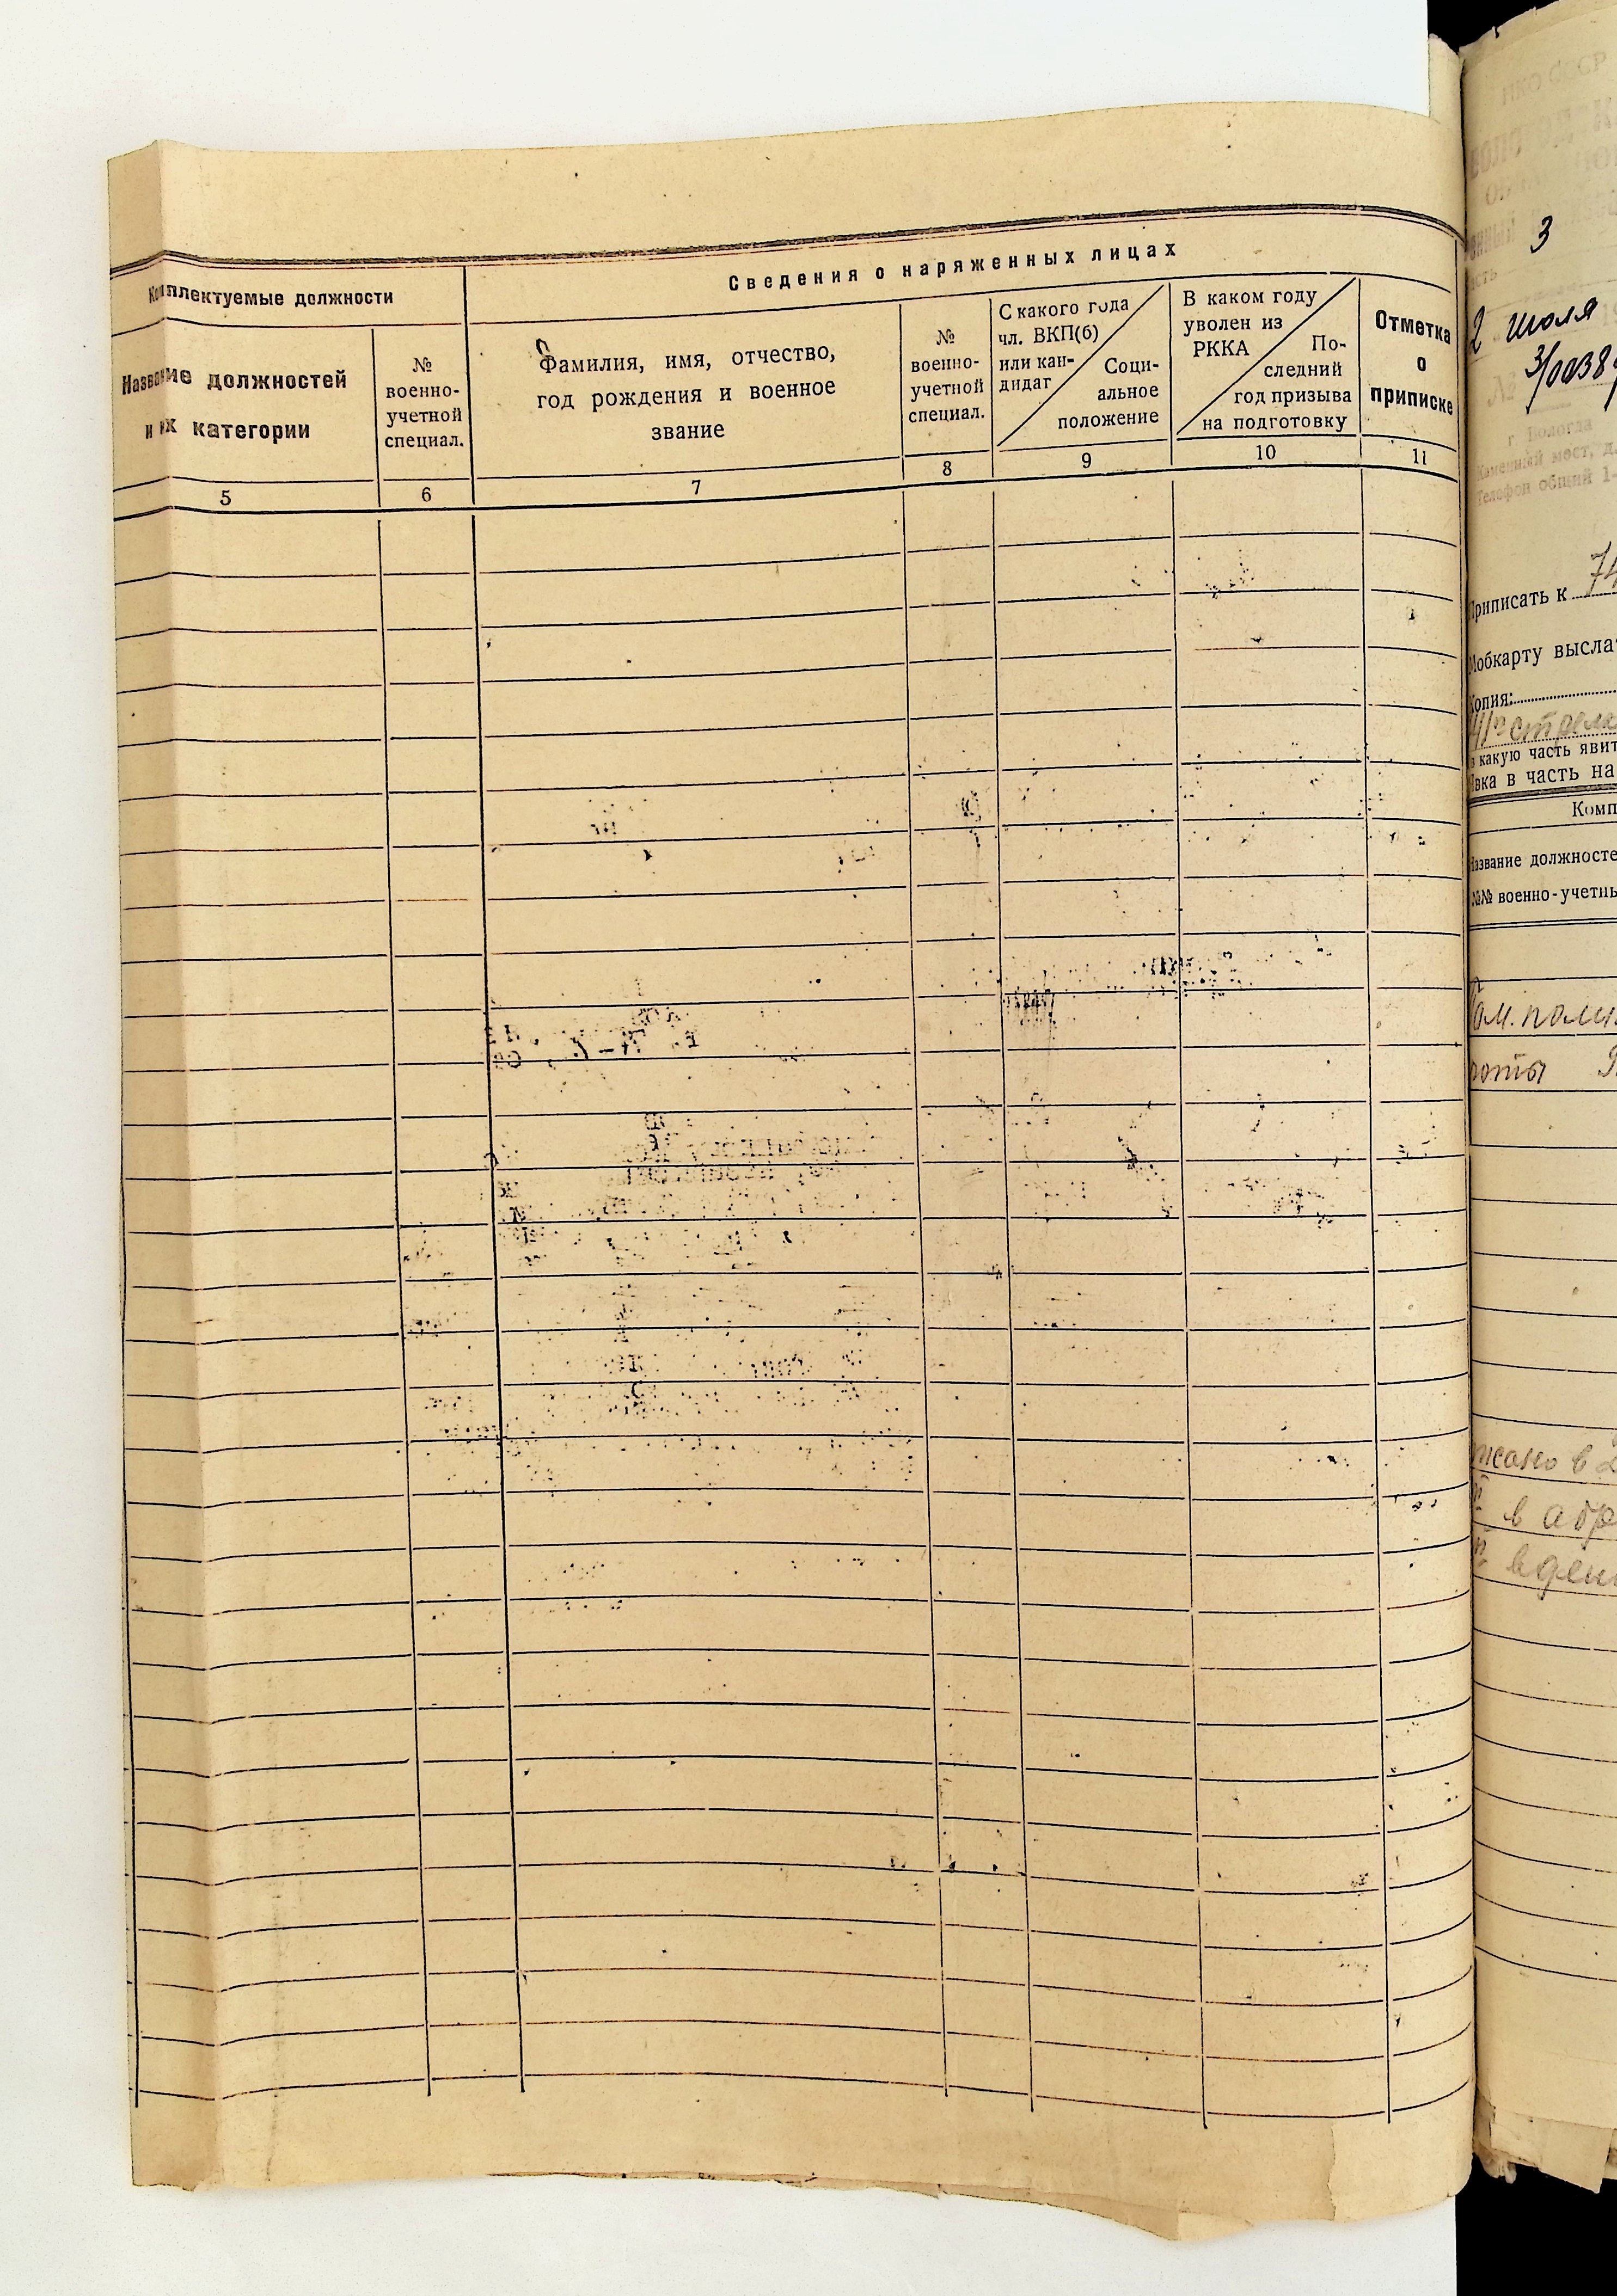 Сведения о наряженных лицах
Комплектуемые должности
Название должностей
и их категории
№
военно-
учетной
специал.
Фамилия, имя, отчество,
год рождения и военное
звание
№
военно-
учетной
специал.
С какого года
чл. ВКП(б)
или кан-
дидат
Соци-
альное
положение
В каком году
уволен из
РККА
По-
следний
год призыва
на подготовку
Отметка
о
приписке
5 6 7 8 9 10 11
НКО СССР
3
2 июля
3/0038
№
г Вологда
Каменный мост, д.
Телефон общий 1-
Приписать к 74
Мобкарту высла
Копия:
в какую часть явит
Явка в часть на
Комп
Название должносте
№№ военно-учетны
роты